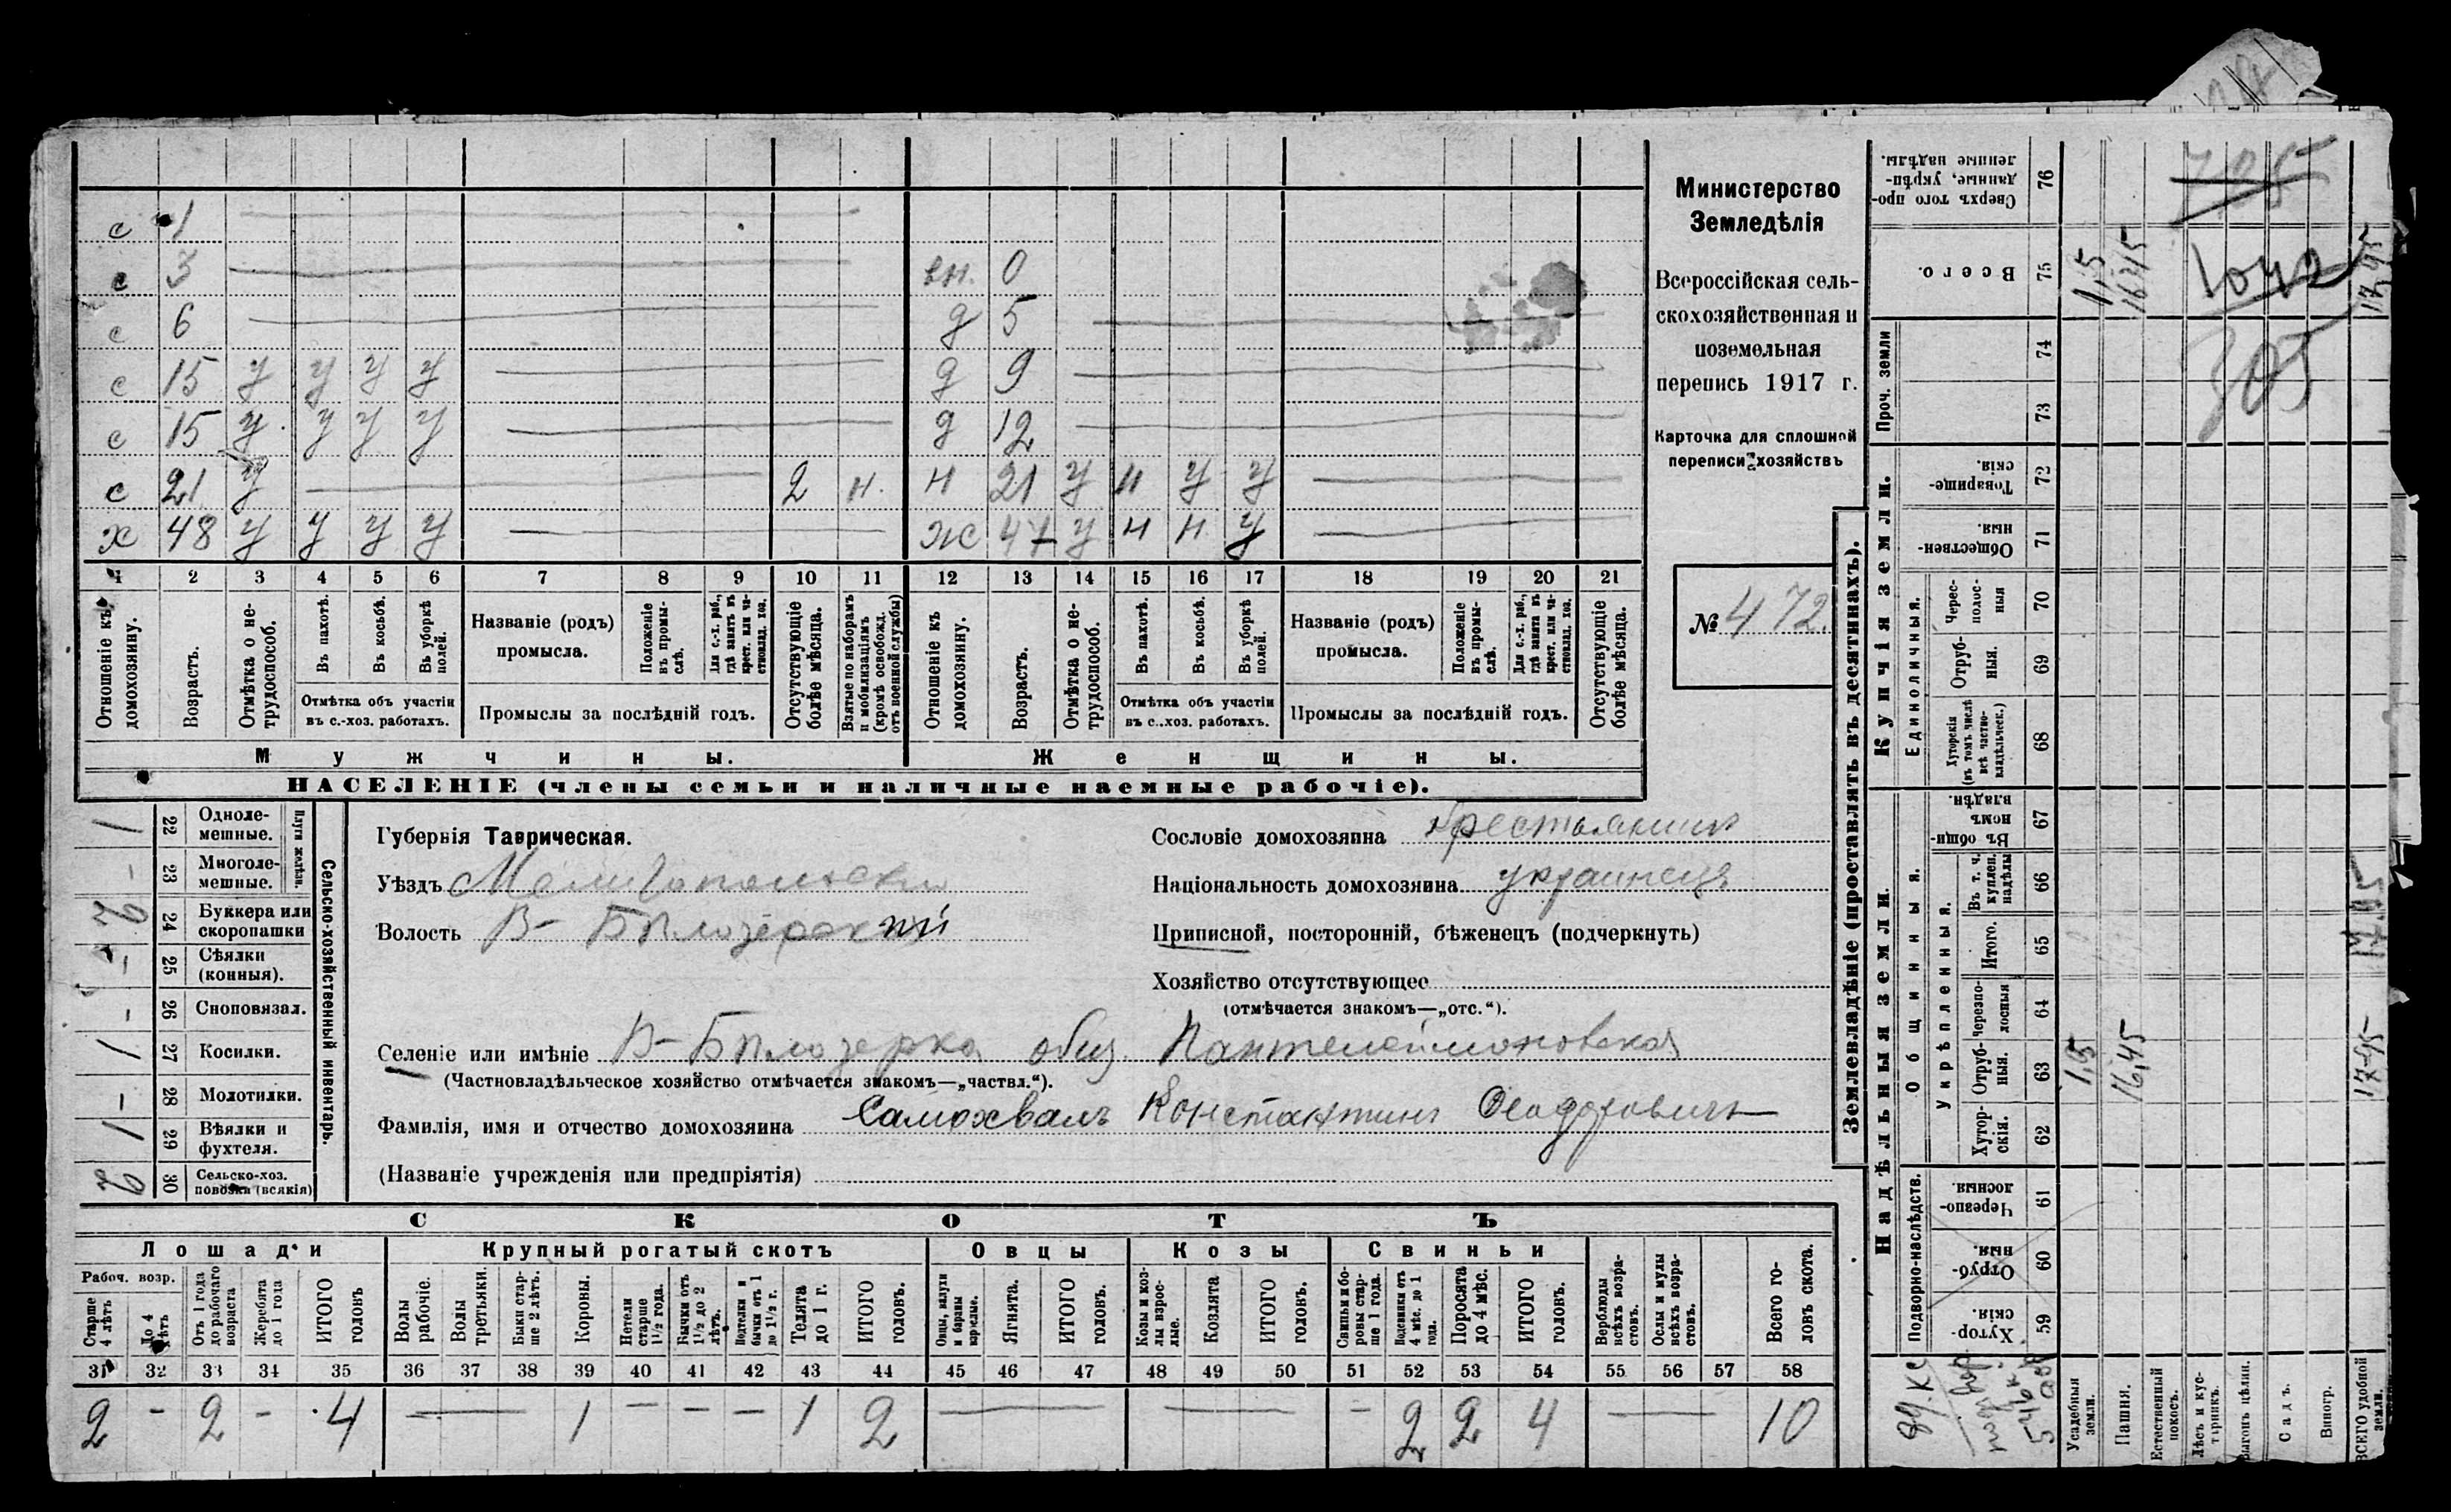 с 1
с 3 вн. 0
с 6 д 5
с 15 у у у у д 9
с 15 у у у у д 12
с 21 у 2 н. н 21 у н у у
х 48 у у у у ж 47 у н н у
1 2 3 4 5 6 7 8 9 10 11 12 13 14 15 16 17 18 19 20 21
Отношеніе къ домохозяину.
Возрастъ.
Отмѣтка о не-трудоспособ.
Въ пахотѣ.
Въ косьбѣ.
Въ уборкѣ полей.
Отмѣтка объ участіи въ с.-хоз. работахъ.
Названіе (родъ) промысла.
Положеніе въ промы-слѣ.
Для с.-х. раб., гдѣ занятъ въ крест. или ча-стновлад. хоз.
Промыслы за послѣдній годъ.
Отсутствующіе болѣе мѣсяца.
Взятые по наборамъ и мобилизаціямъ (кромѣ освобожд. отъ военной службы)
Отношеніе къ домохозяину.
Возрастъ.
Отмѣтка о не-трудоспособ.
Въ пахотѣ.
Въ косьбѣ.
Въ уборкѣ полей.
Отмѣтка объ участіи въ с..хоз. работахъ.
Названіе (родъ) промысла.
Положеніе въ промы-слѣ.
Для с.-х. раб., гдѣ занята въ крест. или ча-стновлад. хоз.
Промыслы за послѣдній годъ.
Отсутствующіе болѣе мѣсяца.
Мужчины.
Женщины.
НАСЕЛЕНІЕ (члены семьи и наличные наемные рабочіе).
Министерство
Земледѣлія
Всероссійская сель-
скохозяйственная и
поземельная
перепись 1917 г.
Карточка для сплошной
переписи хозяйствъ
№ 472.
Сельско-хозяйственный инвентарь.
Плуги желѣз.
1 22 Одноле-мешные.
- 23 Многоле-мешные.
24 Буккера или скоропашки
- 25 Сѣялки (конныя).
- 26 Сноповязал.
1 27 Косилки.
- 28 Молотилки.
1 29 Вѣялки и фухтеля.
2 30 Сельско-хоз. повозки (всякія)
Губернія Таврическая.
Уѣздъ Мелитопольский
Волость В-Бѣлозерский
Сословіе домохозяина крестьянинъ
Національность домохозяина украинецъ
Приписной, посторонній, бѣженецъ (подчеркнуть)
Хозяйство отсутствующее
(отмѣчается знакомъ—„отс.“).
Селеніе или имѣніе В-Бѣлозерка общ. Пантелеймоновская
(Частновладѣльческое хозяйство отмѣчается знакомъ—„частвл.“).
Фамилія, имя и отчество домохозяина Самохвалъ Константинъ Феодоровичъ
(Названіе учрежденія или предпріятія)
СКОТЪ
Лошади
Крупный рогатый скотъ
Овцы
Козы
Свиньи
Рабоч. возр.
Старше 4 лѣтъ
До 4 лѣтъ
Отъ 1 года до рабочаго возраста
Жеребята до 1 года
ИТОГО головъ
Волы рабочіе.
Волы третьяки.
Быки стар-ше 2 лѣтъ.
Коровы.
Нетели старше 1½ года.
Бычки отъ 1½ до 2 лѣтъ.
Подтелки и бычки отъ 1 до 1½ г.
Телята до 1 г.
ИТОГО головъ.
Овцы, валухи и бараны взрослые.
Ягнята.
ИТОГО головъ.
Козы и коз-лы взрос-лые.
Козлята
ИТОГО головъ.
Свиньи и бо-ровы стар-ше 1 года.
Подсвинки отъ 4 мѣс. до 1 года.
Поросята до 4 мѣс.
ИТОГО головъ.
Верблюды всѣхъ возра-стовъ.
Ослы и мулы всѣхъ возра-стовъ.
Всего го-ловъ скота.
31 32 33 34 35 36 37 38 39 40 41 42 43 44 45 46 47 48 49 50 51 52 53 54 55 56 57 58
2 - 2 - 4 - 1 - - - 1 2 - - - 2 2 4 - 10
Землевладѣніе (проставлять въ десятинахъ).
Надѣльныя земли.
Купчія земли.
Проч. земли
Подворно-наслѣдств.
Общинныя.
Укрѣпленныя.
Единоличныя.
Хутор-скія. 59
Отруб-ныя. 60
Черезпо-лосныя. 61
Хутор-скія. 62
Отруб-ныя. 63
Черезпо-лосныя 64
Итого. 65
Въ т. ч. куплен. надѣлы 66
Въ общин-номъ владѣн. 67
Хуторскія (въ томъ числѣ всѣ частно-владѣльческ.) 68
Отруб-ныя. 69
Черес-полос-ныя 70
Обществен-ныя. 71
Товарище-скія. 72
73
74
Всего. 75
Сверхъ того про-данные, укрѣп-ленные надѣлы. 76
Усадебныя земли. 1,5 1,5
Пашня. 16,45 16,45
Естественный покосъ.
Лѣсъ и кус-тарникъ.
Выгонъ цѣлин.
Садъ.
Виногр.
ВСЕГО удобной земли. 17,95 17,95 17,95
705
1042
305